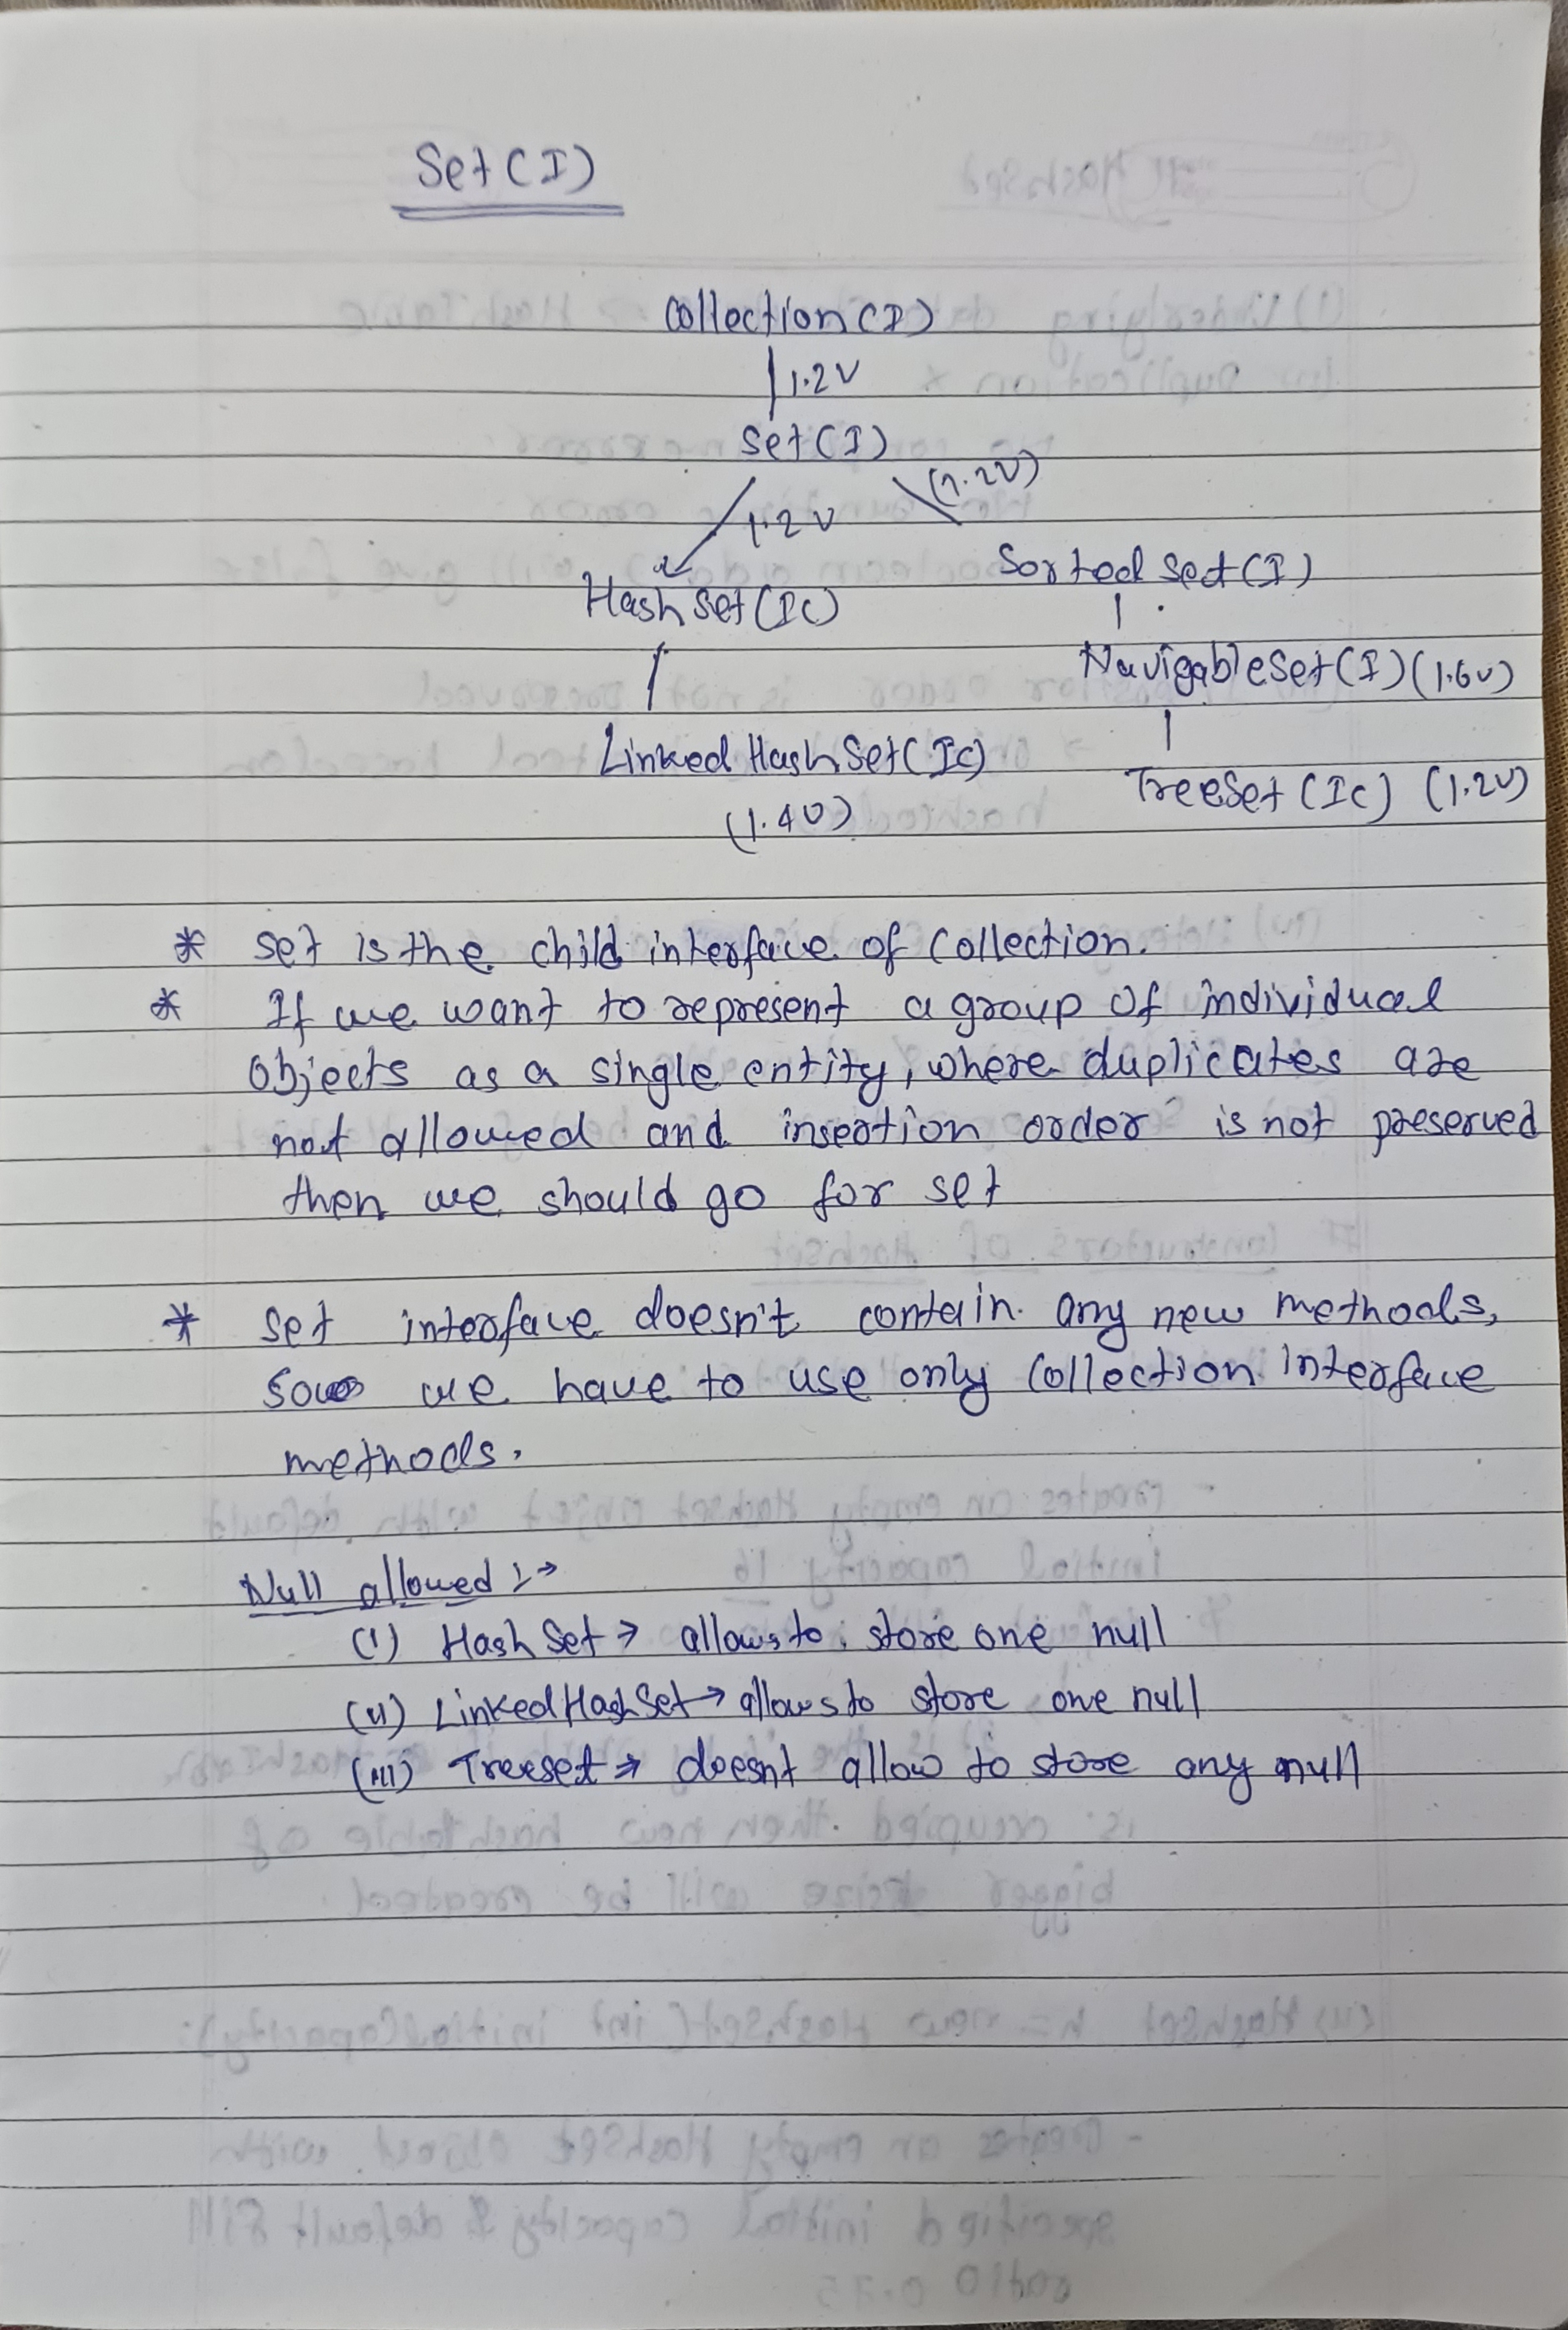 Set (I)
Collection (I)
1.2V
Set (I)
(1.2V)
1.2V
Sorted Set (I)
HashSet (IC)
NavigableSet (I) (1.6V)
Linked HashSet (IC)
TreeSet (IC) (1.2V)
(1.4V)
* set is the child interface of Collection.
* If we want to represent a group of individual
objects as a single entity, where duplicates are
not allowed and insertion order is not preserved
then we should go for set
* set interface doesn't contain any new methods,
so we have to use only Collection interface
methods.
Null allowed :->
(i) HashSet → allows to store one null
(ii) LinkedHashSet → allows to store one null
(iii) Treeset → doesnt allow to store any null